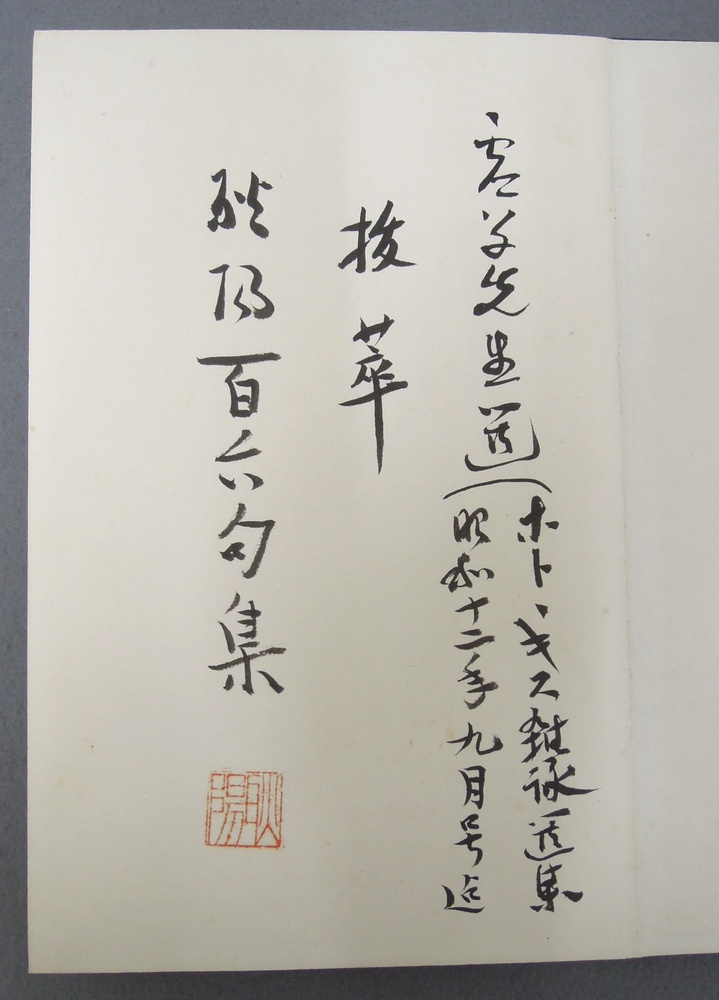 虚子先生選(ホトヽギス雑詠選集
昭和十二年九月号迄
抜萃
耿陽百六句集
耿陽